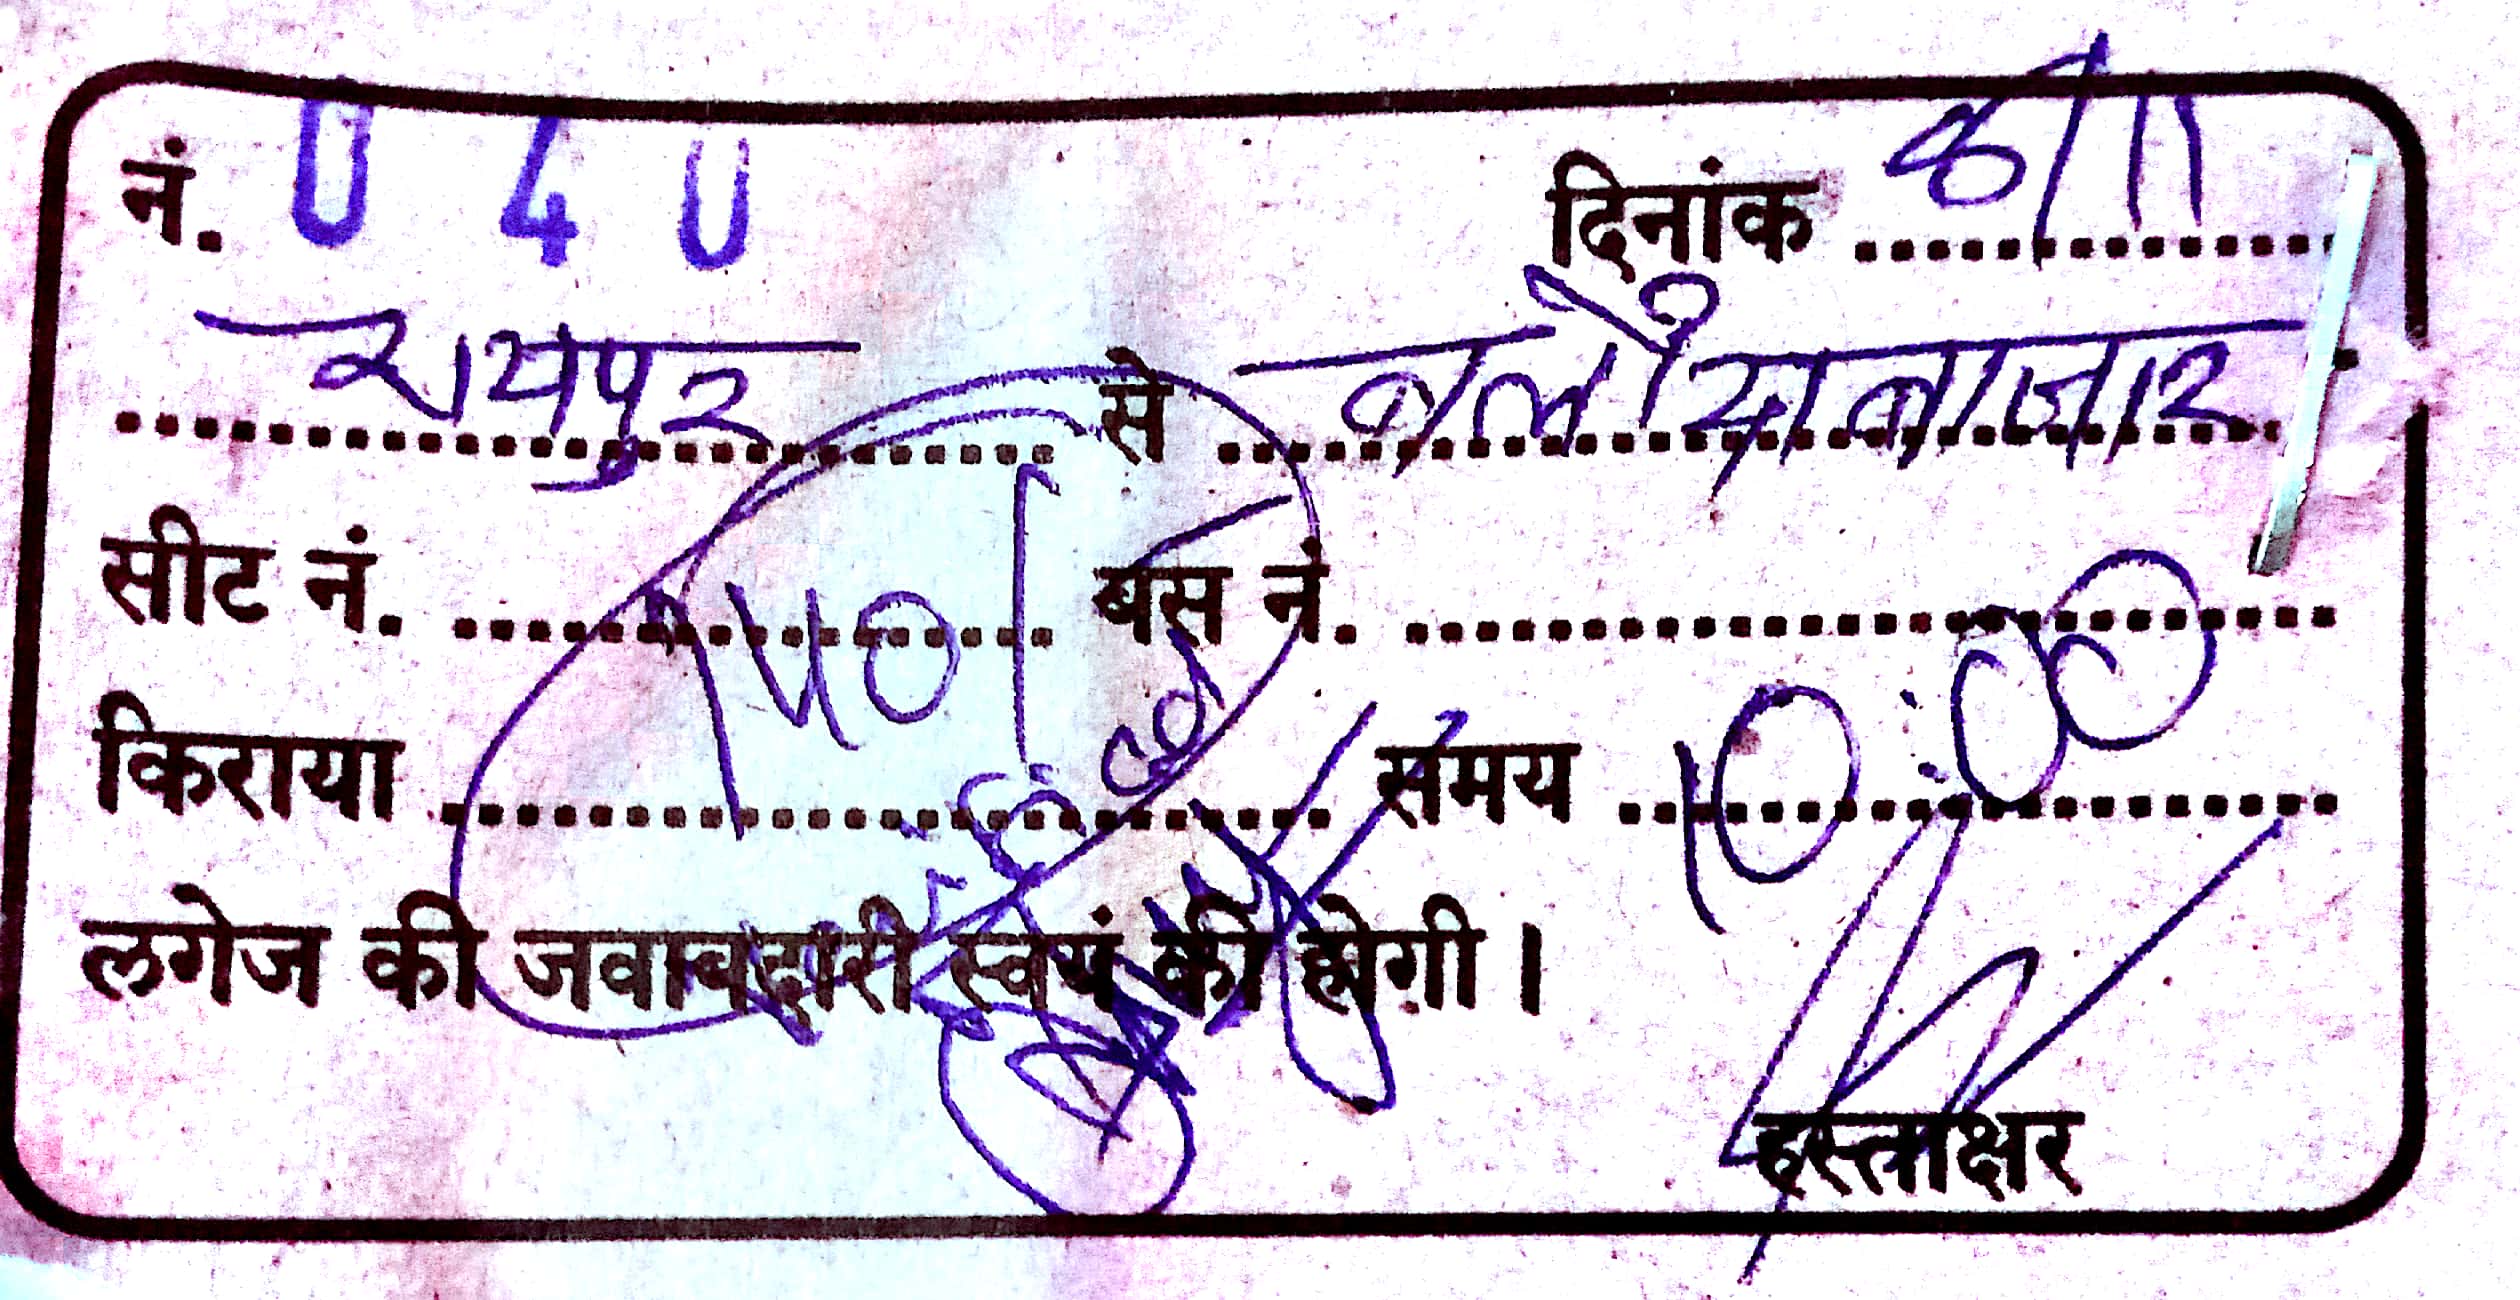 नं. 040 दिनांक 8/11
रायपुर से बलौदाबाजार
सीट नं. बस नं.
किराया 150/ समय 10:00
लगेज की जवाबदारी स्वयं की होगी।
हस्ताक्षर